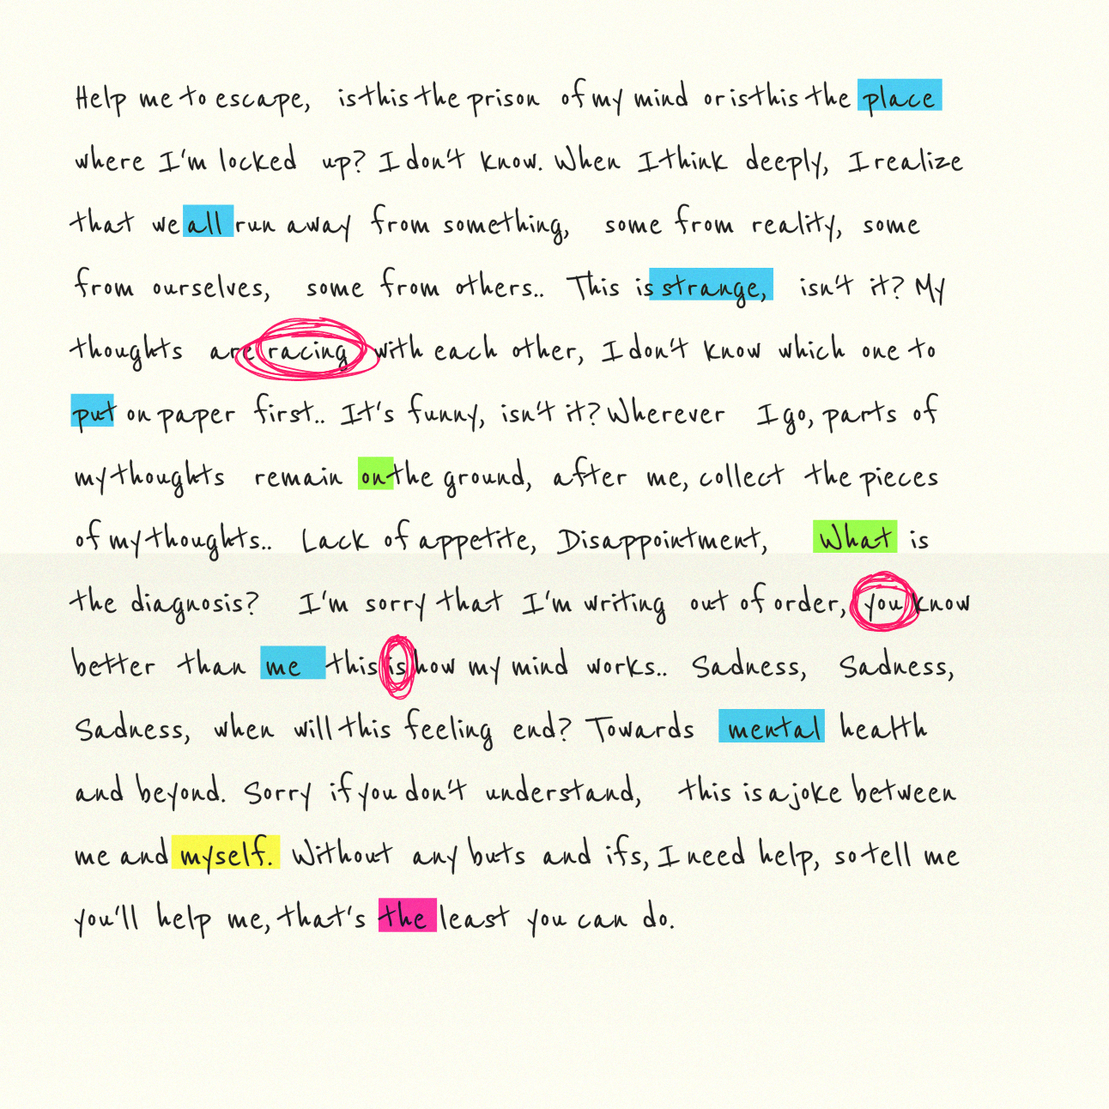 Help me to escape, is this the prison of my mind or is this the place
where I'm locked up? I don't know. When I think deeply, I realize
that we all run away from something, some from reality, some
from ourselves, some from others.. This is strange, isn't it? My
thoughts are racing with each other, I don't know which one to
put on paper first.. It's funny, isn't it? Wherever I go, parts of
my thoughts remain on the ground, after me, collect the pieces
of my thoughts.. Lack of appetite, Disappointment, What is
the diagnosis? I'm sorry that I'm writing out of order, you know
better than me this is how my mind works.. Sadness, Sadness,
Sadness, when will this feeling end? Towards mental health
and beyond. Sorry if you don't understand, this is a joke between
me and myself. Without any buts and ifs, I need help, so tell me
you'll help me, that's the least you can do.